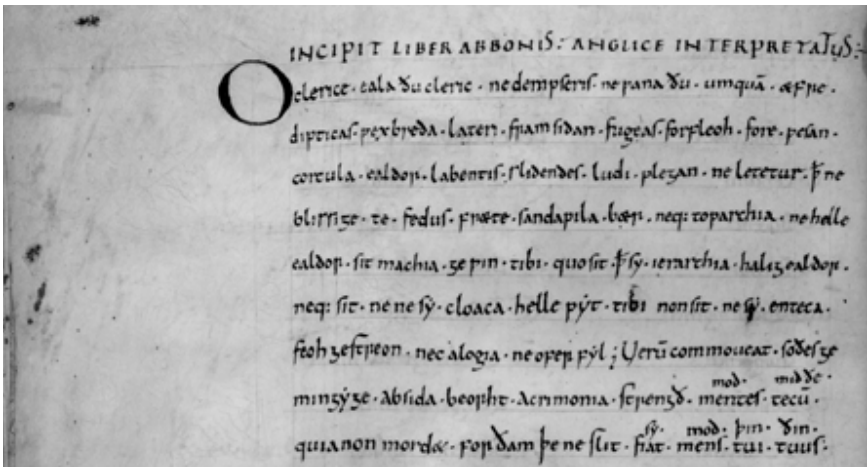 INCIPIT LIBER ABBONIS: ANGLICE INTERPRETATUS:
O clerice · eala ðu cleric · ne dempseris · ne ƿana ðu · umquā · æfre ·
dipticas · ƿexbreda · lateri · fram sidan · fugeas · forfleoh · fore · ƿesan ·
corcula · ealdor · labentis · slidendes · ludi · plegan · ne letetur · ꝥ ne
blissige · te · fedus · fræte · sandapila · bær · neq: toparchia · ne helle
ealdor · sit machia · geƿin · tibi · quo sit · ꝥ sy · ierarchia · halig ealdor ·
neq: sit · ne ne sẏ · cloaca · helle pẏt · tibi non sit · ne sẏ · enteca ·
feoh gestreon · nec alogia · ne ofer fẏl ; Uerū commoueat · soðes ge
mod · midðe ·
mingẏge · absida · beorht · Acrimonia · strengð · mentes · tecū ·
sẏ · mod · þin · ðin ·
quia non mordæ · for ðam þe ne slit · fiat · mens · tui · tuus ·